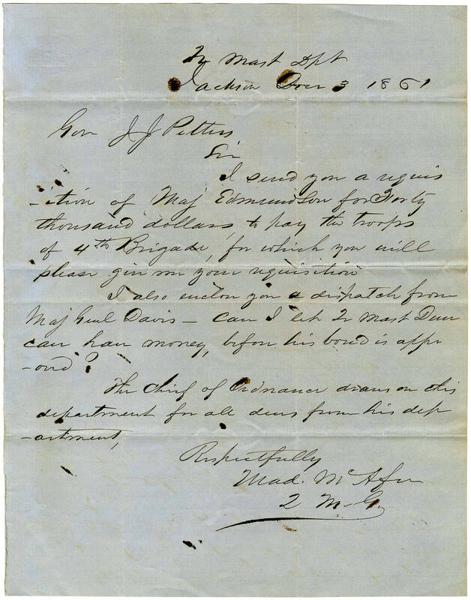 2r Mast Dpt
Jackson Decr 3 1861
Gov J J Pettus
Sir
I send you a requis
-ition of Maj Edmundson for Forty
thousand dollars to pay the troops
of 4th Brigade, for which you will
please give me your requisition
I also enclose you a dispatch from
Maj Genl Davis - can I let 2r Mast
can have money, before his bond is appr
-oved?
The Chief of Ordnance draws on this
department for all dues from his dep
-artment,
Respectfully
Mad. McAfee
2 M G